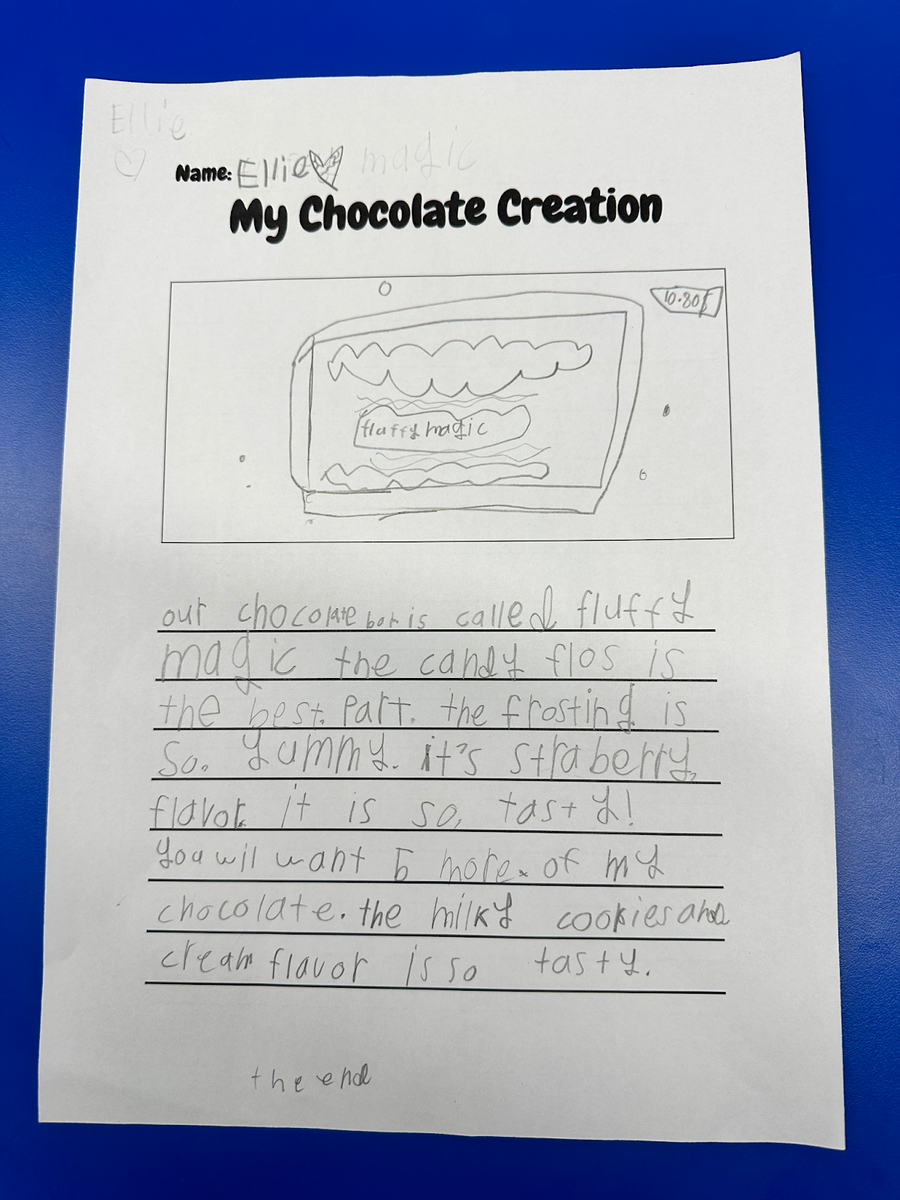 Ellie
Name: Ellie magic
My Chocolate Creation
10.80$
fluffy magic
our chocolate bar is called fluffy
magic the candy flos is
the best. part. the frosting is
so. yummy. it's straberry.
flavor. it is so, tasty!
you wil want 5 more. of my
chocolate. the milky cookies and
cream flavor is so tasty.
the end